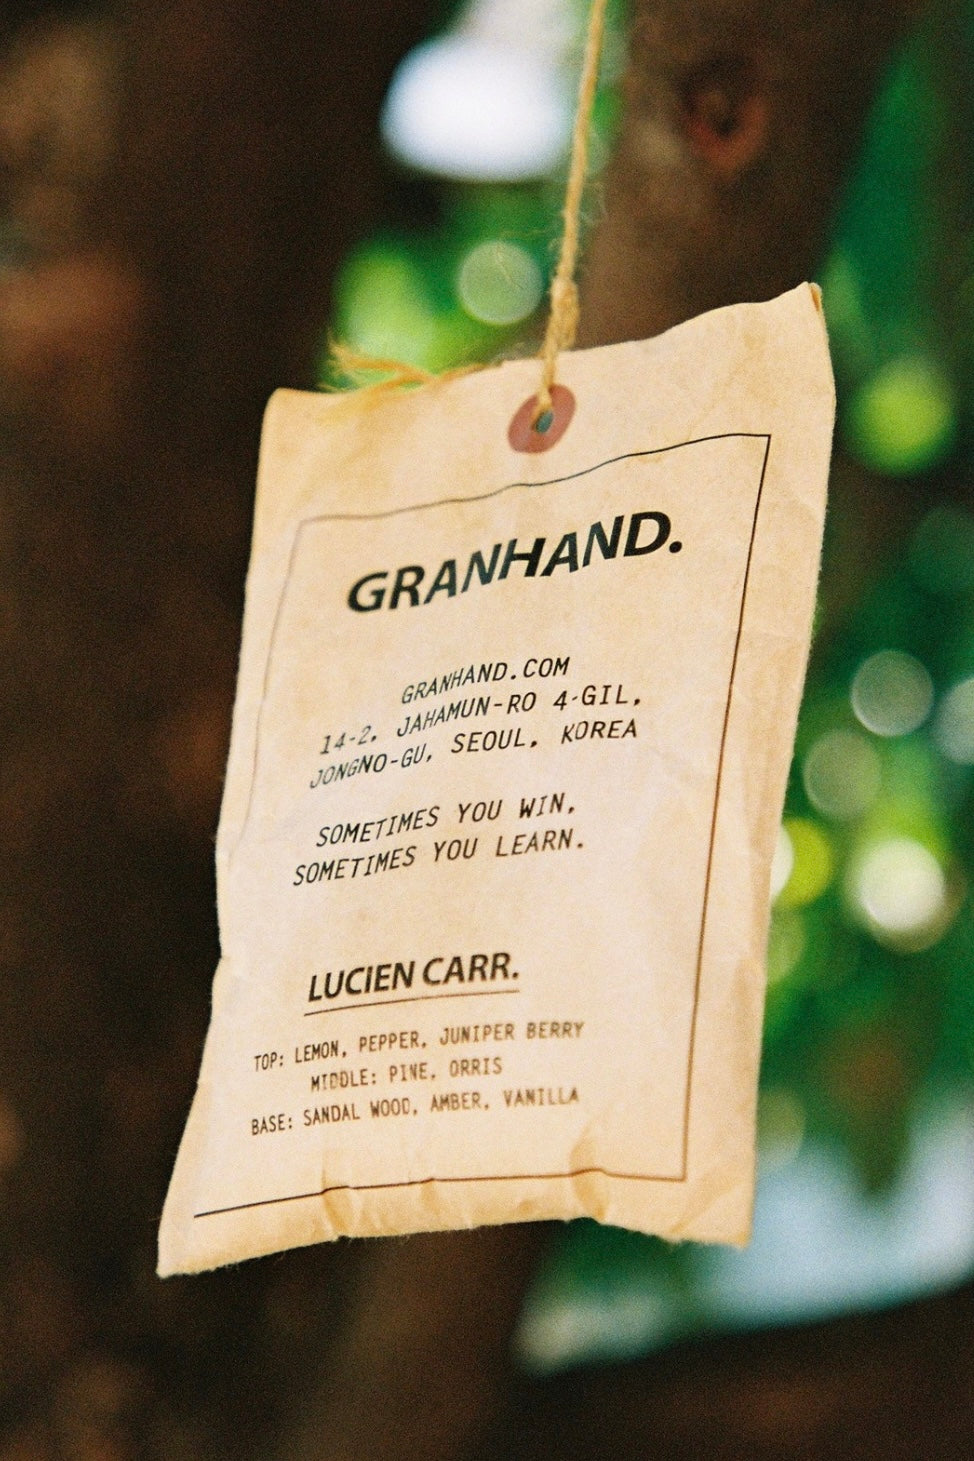 GRANHAND.
GRANHAND.COM
14-2, JAHAMUN-RO 4-GIL,
JONGNO-GU, SEOUL, KOREA
SOMETIMES YOU WIN,
SOMETIMES YOU LEARN.
LUCIEN CARR.
TOP: LEMON, PEPPER, JUNIPER BERRY
MIDDLE: PINE, ORRIS
BASE: SANDAL WOOD, AMBER, VANILLA